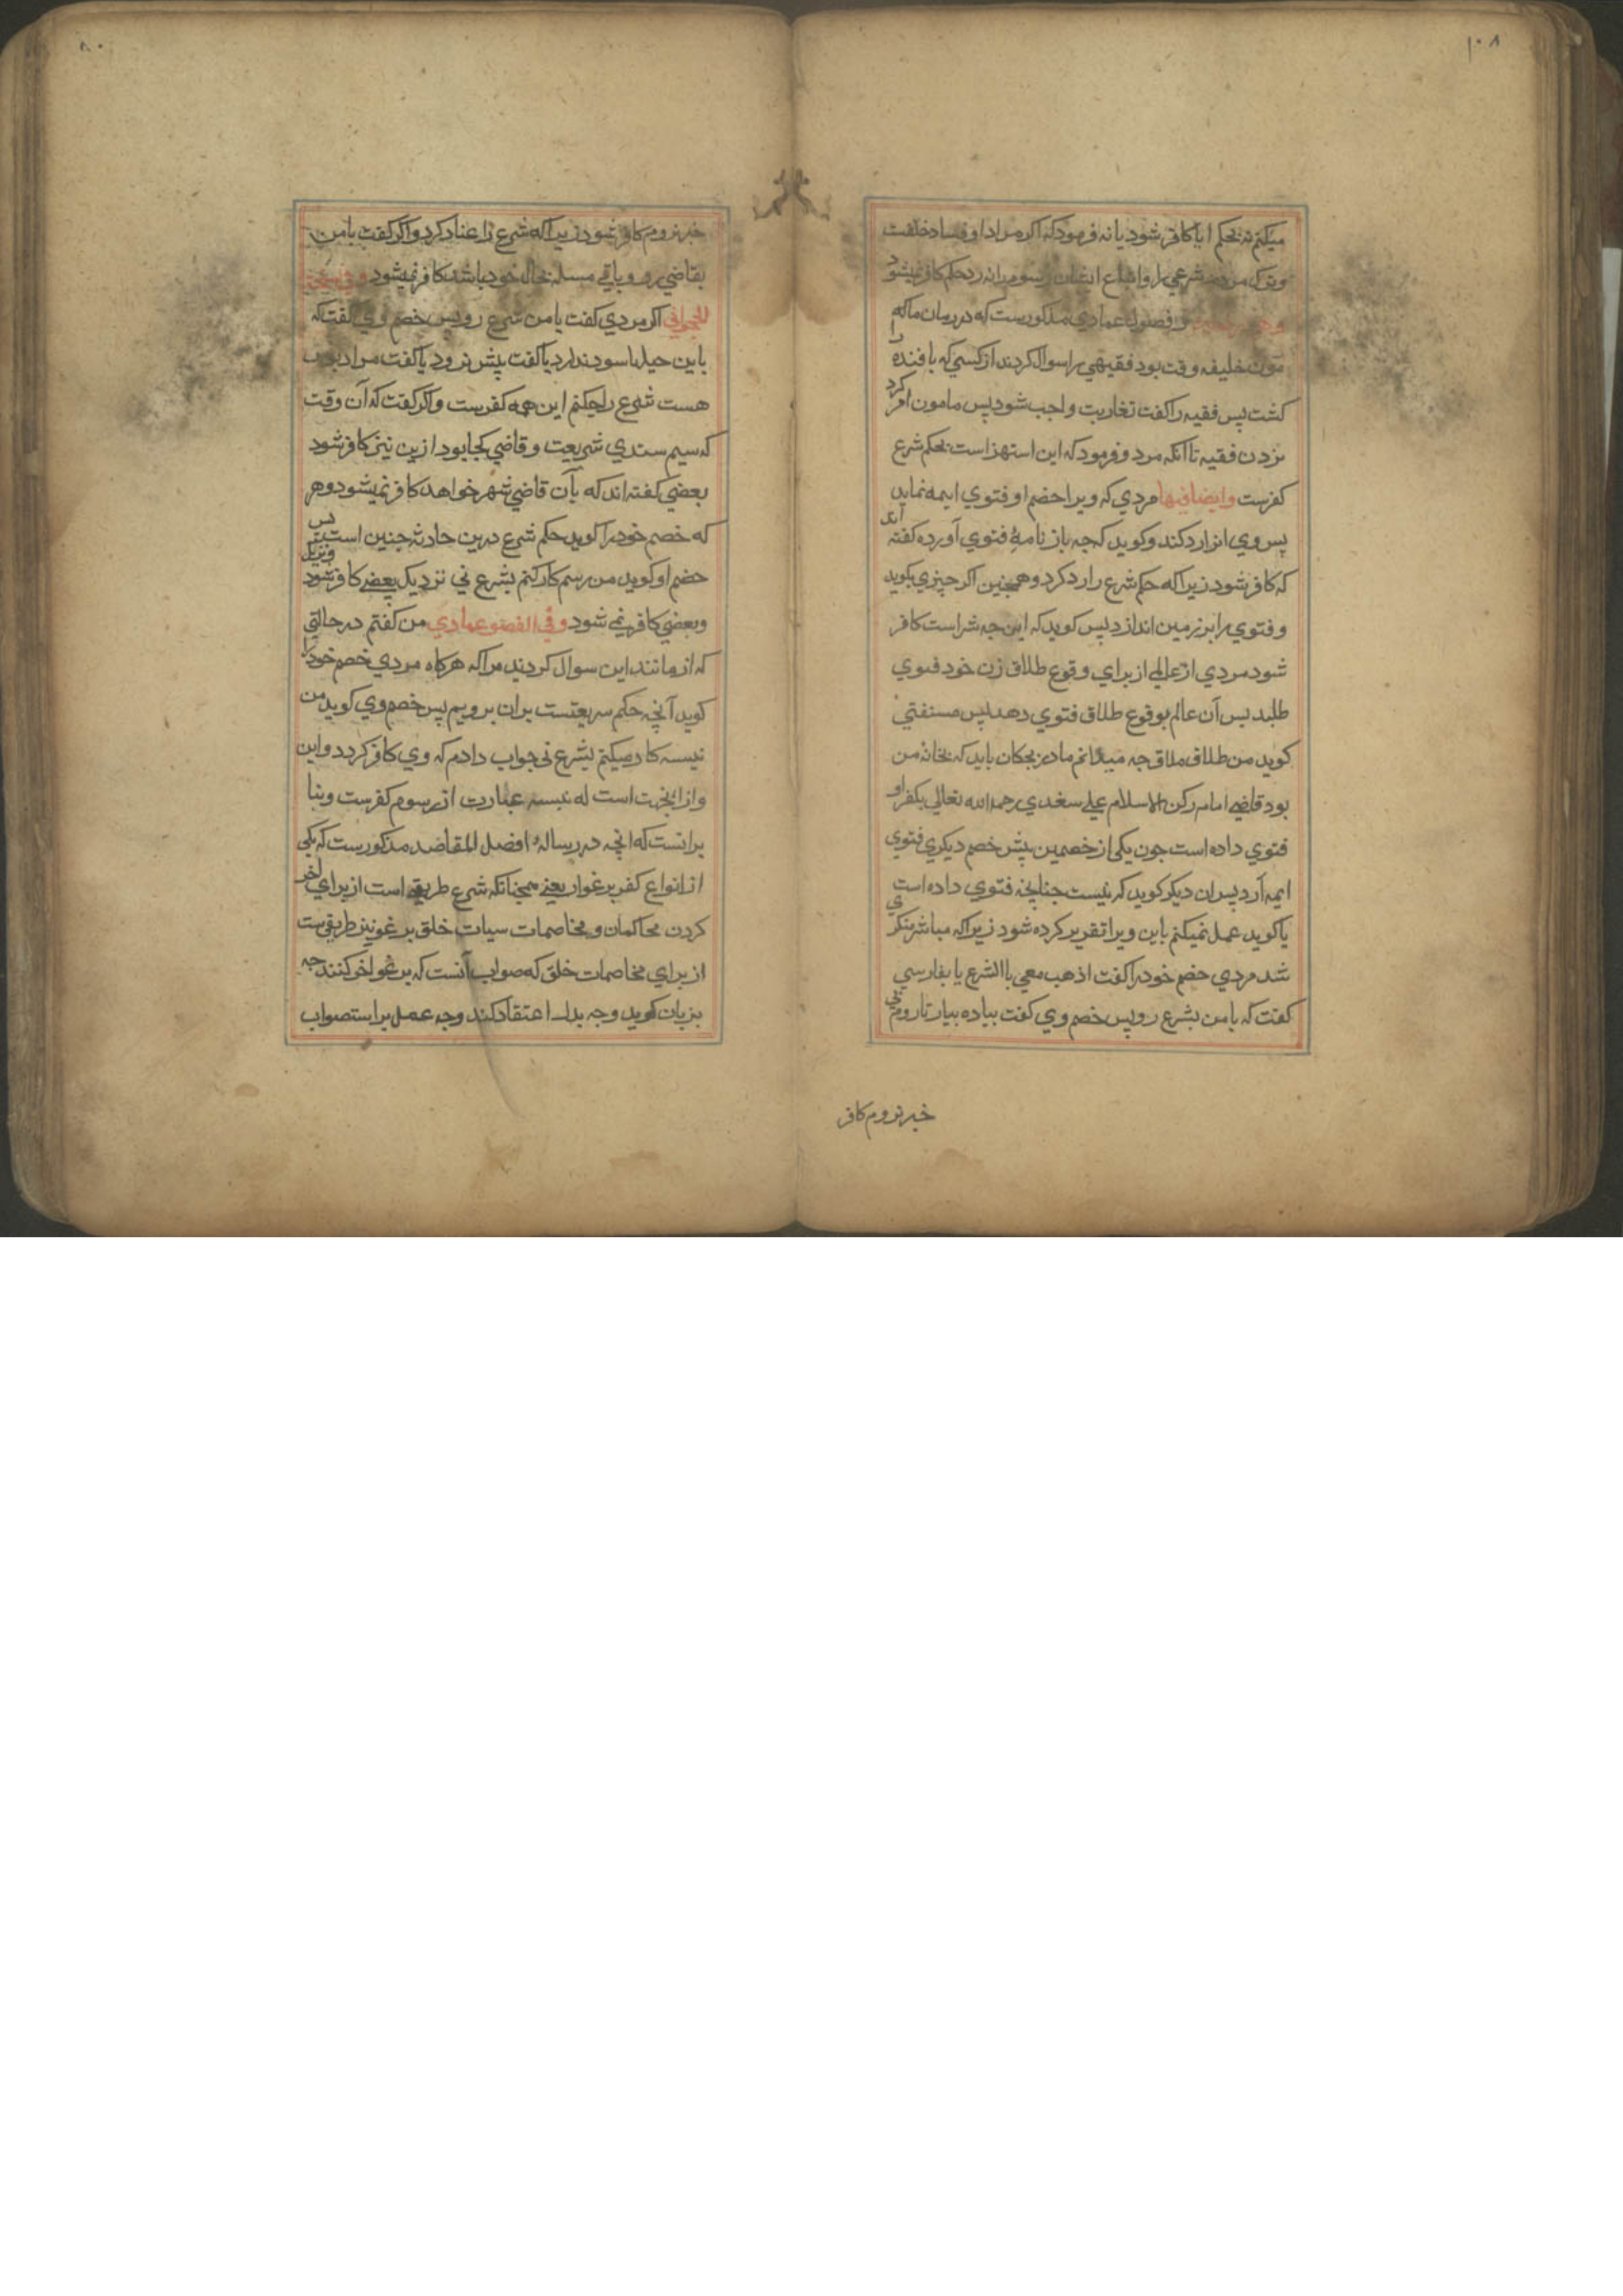 ۱۰۸
میکنم نه بحکم ایا کافر شود یا نه فرمود که اکر مراد او فساد خلقت
وترک شرعي را واتباع رسوم رانه رد حکم کافر نمیشود
فصول عمادي مذکورست که در زمان ماکه
مون خلیفه وقت بود فقیهي را سوال کردند از کسي که بافنده را
کشت پس فقیه را کفت تغاریت واجب شود پس مامون امر کرد
بزدن فقیه تا انکه مرد وفرمود که این استهزا است بحکم شرع
کفرست وایضا فیها مردي که ویرا خصم او فتوي ایمه نماید
پس وي انرا رد کند وکوید که چه باز نامهٔ فتوي آورده کفته اند
که کافر شود زیرا که حکم شرع را رد کرد وهمچنین اکر چیزي بکوید
وفتوي را بر زمین اندازد پس کوید که این چه شراست کافر
شود مردي از عالمي از براي وقوع طلاق زن خود فتوي
طلبد پس آن عالم بوقوع طلاق فتوي دهد پس مستفتي
کوید من طلاق ملاق چه میدانم مادر بچکان باید که بخانه من
بود قاضي امام رکن الاسلام علي سغدي رحمه الله تعالي بکفر او
فتوي داده است چون یکي از خصمین پیش خصم دیکري فتوي
ایمه آرد پس ان دیکر کوید که نیست چنانچه فتوي داده است
یا کوید عمل نمیکنم باین ویرا تقریر کرده شود زیرا که مباشر منکري
شد مردي خصم خودرا کفت اذهب معي باالشرع یا بفارسي
کفت که بامن بشرع رو پس خصم وي کفت پیاده بیار تا روم بي
خبر نروم کافر
۸۰
خبر نروم کافر شود زیرا که شرع را عناد کرد واکر کفت بامن
بقاضي رو وباقي مسله بحال خود باشد کافر نمیشود
اکر مردي کفت بامن شرع رو پس خصم وي کفت که
باین حیلها سود ندارد یا کفت پیش نرود یا کفت مرا دبوس
هست شرع را چکنم این همه کفرست واکر کفت که آن وقت
که سیم ستدي شریعت وقاضي کجا بود ازین نیز کافر شود
بعضي کفته اند که بآن قاضي شهر خواهد کافر نمیشود وهر
که خصم خودرا کوید حکم شرع درین حادثه چنین است پس
خصم او کوید من برسم کار کنم بشرع ني نزدیک بعضي کافر شود
وبعضي کافر نمي شود وفي الفصو عمادي من کفتم در حالتي
که از مانند این سوال کردند مرا که هرکاه مردي خصم خودرا
کوید آنچه حکم شریعتست بران برویم پس خصم وي کوید من
نیسه کار میکنم بشرع ني جواب دادم که وي کافر کردد واین
وازانجهت است که نیسه عبارت از رسوم کفرست وبنا
برانست که انچه در رساله افضل المقاصد مذکورست که یکي
از انواع کفر یرغوار یعني همچنانکه شرع طریقه است از براي اخر
کردن محاکمان ومخاصمات سیات خلق یرغو نیز طریقیست
از براي مخاصمات خلق که صواب آنست که یرغو اخر کنند چه
بزبان کوید وچه بدل اعتقاد کند وچه عمل براستصواب